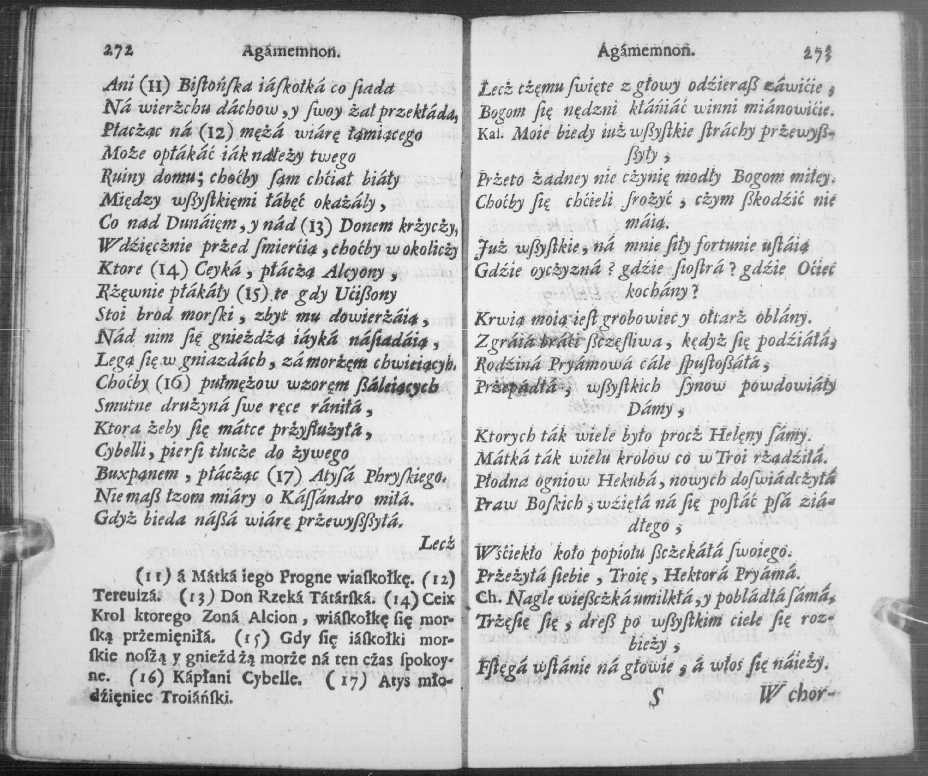 272 Agámemnon.
Ani (11) Bistońska iáskołká co siada
Ná wierzchu dáchow, y swoy żal przekłáda,
Płacząc ná (12) mężá wiárę łamiącego
Może opłákáć iák należy twego
Ruiny domu; choćby sąm chćiał biáły
Między wßystkięmi łábęć okazáły,
Co nad Dunáięm, y nád (13) Donem krżyczy,
Wdźięcznie przed śmierćią, choćby w okoliczy
Ktore (14) Ceyká, płáczą Alcyony,
Rżęwnie płákáły (15) te gdy Ućißony
Stoi brod morski, zbyt mu dowierżáią,
Nád nim się gnieżdżą iáyká násiadáią,
Legą się w gniazdách, zá morżęm chwieiących.
Choćby (16) pułmężow wzoręm ßáleiących
Smutne drużyná swe ręce rániłá,
Ktora żeby się mátce prżysłużyłá,
Cybelli, piersi tłucze do żywego
Buxpąnem, płácząc (17) Atysá Phryskiego.
Nie maß łzom miáry o Kássándro miłá.
Gdyż bieda náßá wiárę prżewyßßyłá.
Lecż
(11) á Mátká iego Progne wiaskołkę. (12)
Tereuizá. (13) Don Rzeká Tátárská. (14) Ceix
Krol ktorego Zoná Alcion, wiáskołkę się mor-
ską prżemięniłá. (15) Gdy się iáskołki mor-
skie noszą y gnieżdżą morże ná ten cżas spokoy-
ne. (16) Kápłani Cybelle. (17) Atys mło-
dźięniec Troiáński.
Agámemnoń. 273
Lecż tżęmu święte z głowy odźieraß záwićie,
Bogom się nędzni kłániáć winni miánowićie.
Kaſ. Moie biedy iuż wßystkie stráchy prżewyß-
ßyły,
Prżeto żadney nie cżynię modły Bogom miłey.
Choćby się chćieli srożyć, cżym ßkodźić nie
máią.
Już wßystkie, ná mnie siły fortunie ustáią
Gdźie oycżyzná? gdźie siostrá? gdźie Oćiec
kochány?
Krwią moią iest grobowiec y ołtarż oblány.
Zgráiá bráći ßcżęsliwa, kędyż się podźiáłá,
Rodźiná Pryámowá cále spustoßáłá,
Przepádłá, wßystkich synow powdowiáły
Dámy,
Ktorych ták wiele było procż Helęny sámy.
Mátká ták wielu krolow co w Troi rżądźiłá.
Płodna ogniow Hekubá, nowych doświádcżyłá
Praw Boskich; wźięłá ná się postáć psá ziá-
dłego,
Wśćiekło koło popiołu ßcżekáłá swoiego.
Prżeżyłá siebie, Troię, Hektorá Pryámá.
Ch. Nagle wießcżká umilkłá, y pobládłá sámá,
Trżęsie się, dreß po wßystkim ciele się roz-
bieży,
Fstęgá wstánie ná głowie, á włos się náieży.
S W chor-